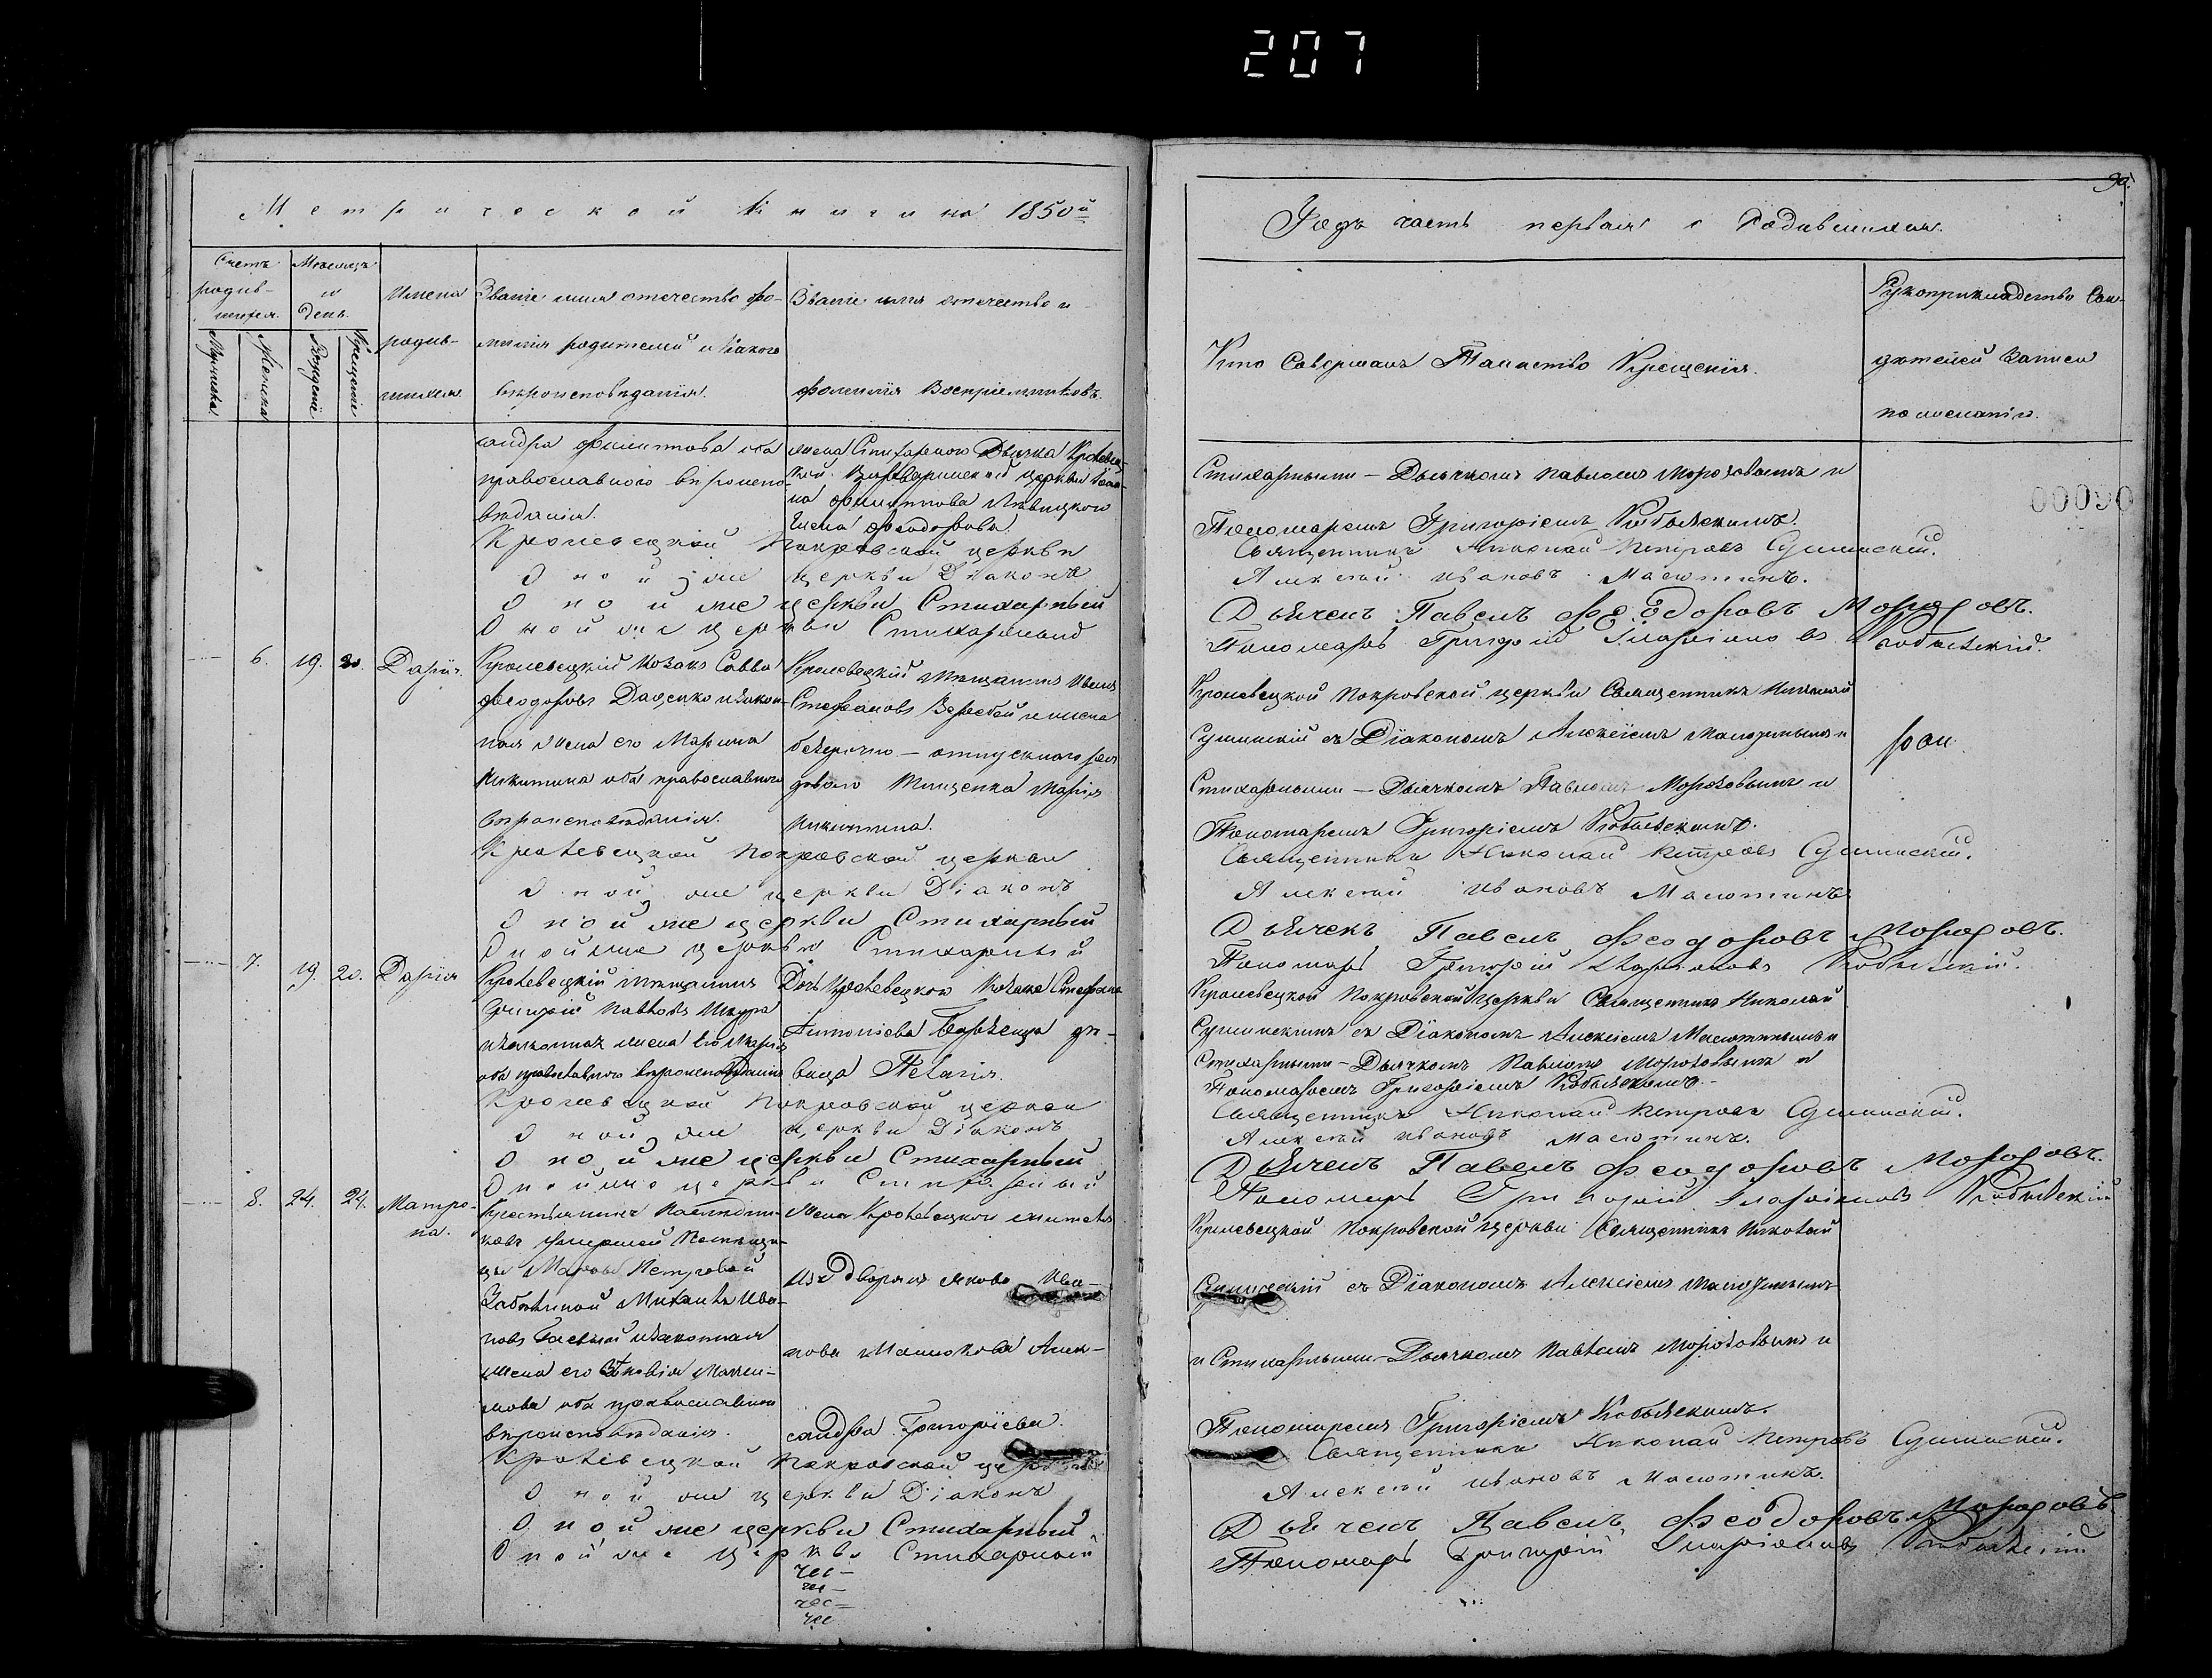 207
Метрической книги на 1850й
Счетъ родив-шихся.
Мужеска
Женска
Месяцъ и День.
Рожденiе
Крещенiе
Имена родив-шихся
Званiе имя отечество фа-
милiя родителей и какого
вероисповеданiя.
Званiе имя отечество и
фамилiя Воспрiемниковъ.
сандра Филиптова оба
православного вероиспо-
веданiя.
жена Стихарного Дьячка Кролевец-
кой церкви Iоан-
на Филиппова Левицкого
Елена Феодорова.
Кролевецкой Покровской церкви
Оной же церкви Дiаконъ
Оной же церкви Стихарный
Оной же церкви Стихарный
6. 19. 20. Дарiя.
Кролевецкiй козакъ Савва
Феодоровъ Даценко и закон-
ная жена его Марина
Никитина оба православного
вероисповеданiя.
Кролевецкiй мещанинъ Иванъ
Стефановъ и жена
безсрочно-отпускного ря-
дового Тищенка Марiя
Никитина.
Кролевецкой Покровской церкви
Оной же церкви Дiаконъ
Оной же церкви Стихарный
Оной же церкви Стихарный
7. 19. 20. Дарiя
Кролевецкiй мещанинъ
Григорiй Павловъ Шкура
и законная жена его Марiя
оба православного вероисповеданiя
Дочь Кролевецкого козака Стефана
Антонiева де-
вица Пелагiя.
Кролевецкой Покровской церкви
Оной же церкви Дiаконъ
Оной же церкви Стихарный
Оной же церкви Стихарный
8. 24. 24. Матро-
на.
Крестьянинъ наследни-
ковъ умершей помещи-
цы Марьи Петровой
Забелиной Михаилъ Ива-
новъ и законная
жена его Зиновiя Макси-
мова оба православного
вероисповеданiя.
жена Кролевецкого жителя
изъ дворянъ Якова Ива-
нова Алек-
сандра Григорiева.
Кролевецкой Покровской церкви
Оной же церкви Дiаконъ
Оной же церкви Стихарный
Оной же церкви Стихарный
90.
Годъ часть первая о Родившихся.
Кто Совершалъ Таинство Крещенiя.
Рукоприкладство Сви-
детелей Записи
по желанiю.
00090
Стихарными - Дьячкомъ Павломъ Морозовымъ и
Пономаремъ Григорiемъ Кобызскимъ.
Священникъ Николай Петровъ Сушинскiй.
Алексей Ивановъ Масютинъ.
Дьячекъ Павелъ Феодоровъ Морозовъ.
Пономарь Григорiй Иларiоновъ Кобызскiй.
Кролевецкой Покровской церкви Священникъ Николай
Сушинскiй съ Дiакономъ Алексiемъ Масютинымъ и
Стихарными - Дьячкомъ Павломъ Морозовымъ и
Пономаремъ Григорiемъ Кобызскимъ.
Священникъ Николай Петровъ Сушинскiй.
Алексей Ивановъ Масютинъ
Дьячекъ Павелъ Феодоровъ Морозовъ.
Пономарь Григорiй Иларiоновъ Кобызскiй.
Кролевецкой Покровской церкви Священникъ Николай
Сушинскимъ съ Дiакономъ Алексiемъ Масютинымъ и
Стихарными - Дьячкомъ Павломъ Морозовымъ и
Пономаремъ Григорiемъ Кобызскимъ.
Священникъ Николай Петровъ Сушинскiй.
Алексей Ивановъ Масютинъ.
Дьячекъ Павелъ Феодоровъ Морозовъ.
Пономарь Григорiй Иларiоновъ Кобызскiй
Кролевецкой Покровской церкви Священникъ Николай
Сушинскiй съ Дiакономъ Алексiемъ Масютинымъ
и Стихарными - Дьячкомъ Павломъ Морозовымъ и
Пономаремъ Григорiемъ Кобызскимъ.
Священникъ Николай Петровъ Сушинскiй.
Алексей Ивановъ Масютинъ.
Дьячекъ Павелъ Феодоровъ Морозовъ
Пономарь Григорiй Иларiоновъ Кобызскiй